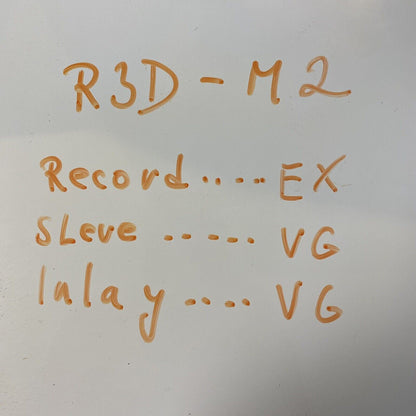 R3D - M2
Record..... EX
SLeve ..... VG
Inlay ..... VG